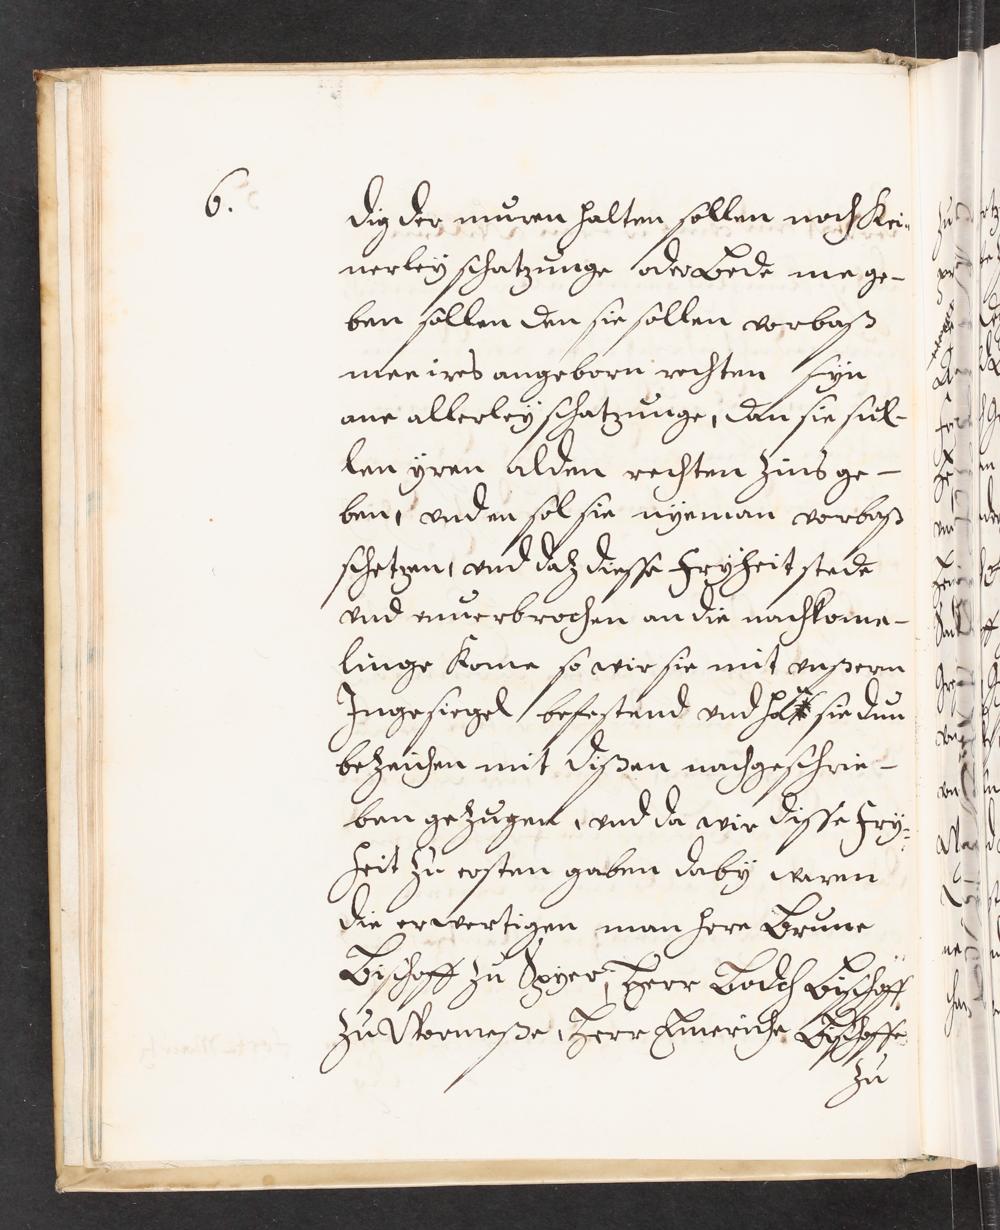 6.
dig der muren halten sollen noch kei-
nerley schatzunge oder Bede me ge-
ben sollen den sie sollen vorbaß
mee ires angeborn rechten syn
ane allerley schatzunge, dan sie sul-
len yren alden rechten Zins ge-
ben, vnd en sol sie nyeman vorbaß
schetzen, vnd daz diesse fryheit stede
vnd vnuerbrochen an die nachkome-
linge kome so wir sie mit vnßerm
Ingesiegel befestend vnd sie dun
bezeichen mit dißen nachgeschrie-
ben gezugen, vnd da wir disse fry-
heit zu ersten gaben daby waren
die erwertigen man here Brune
Bischoff zu Spyer, Herr Bischoff
zu Wormeße, Herr Emeriche Bischoffe
zu